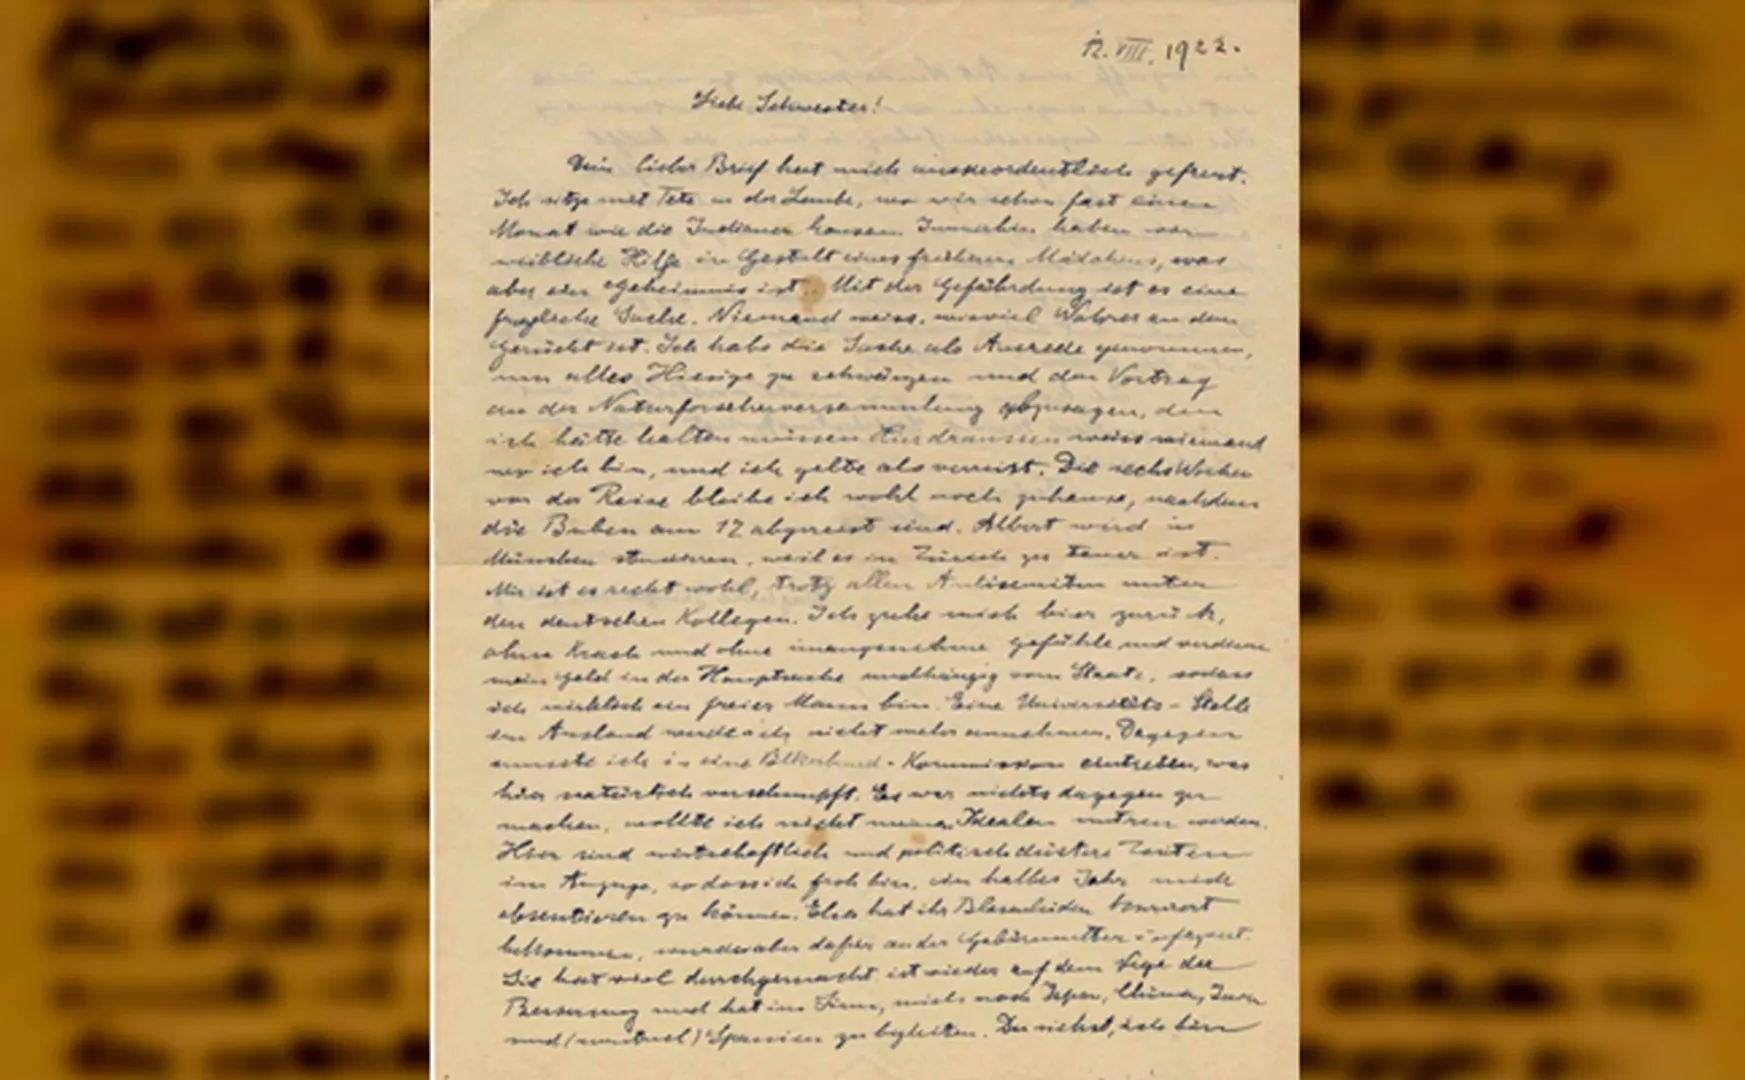 12. VIII. 1922.
Liebe Schwester!
Dein lieber Brief hat mich ausserordentlich gefreut.
Ich sitze mit Tete in der Laube, wo wir schon fast einen
Monat wie die Indianer hausen. Immerhin haben wir
weibliche Hilfe in Gestalt eines früheren Mädchens, was
aber ein Geheimnis ist. Mit der Gefährdung ist es eine
fragliche Sache. Niemand weiss, wieviel Wahres an dem
Gerücht ist. Ich habe die Sache als Ausrede genommen,
um alles Hiesige zu schwänzen und den Vortrag
an der Naturforscherversammlung abzusagen, den
ich hätte halten müssen. Hier draussen weiss niemand
wer ich bin, und ich gelte als verreist. Die sechs Wochen
vor der Reise bleibe ich wohl noch zuhause, nachdem
die Buben am 12 abgereist sind. Albert wird in
München studieren, weil es in Zürich zu teuer ist.
Mir ist es recht wohl, trotz allen Antisemiten unter
den deutschen Kollegen. Ich ziehe mich hier zurück,
ohne Krach und ohne unangenehme Gefühle und verdiene
mein Geld in der Hauptsache unabhängig vom Staate, sodass
ich wirklich ein freier Mann bin. Eine Universitäts-Stelle
im Ausland werde ich nicht mehr annehmen. Dagegen
musste ich in eine Völkerbund-Kommission eintreten, was
hier natürlich verschnupft. Es war nichts dagegen zu
machen, wollte ich nicht meinen Idealen untreu werden.
Hier sind wirtschaftlich und politisch düstere Zeiten
im Anzuge, sodass ich froh bin, ein halbes Jahr mich
absentieren zu können. Elsa hat ihr Blasenleiden
bekommen, wurde aber dafür an der Gebärmutter infiziert.
Sie hat viel durchgemacht, ist wieder auf dem Wege der
Besserung und hat im Sinne, mich nach Japan, China, Java
und (eventuel) Spanien zu begleiten. Du siehst, ich bin